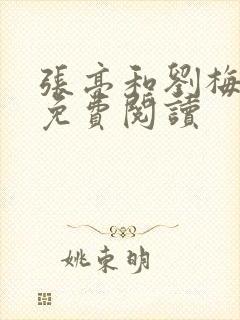 張亭和劉梅
免費閱讀
姚東明